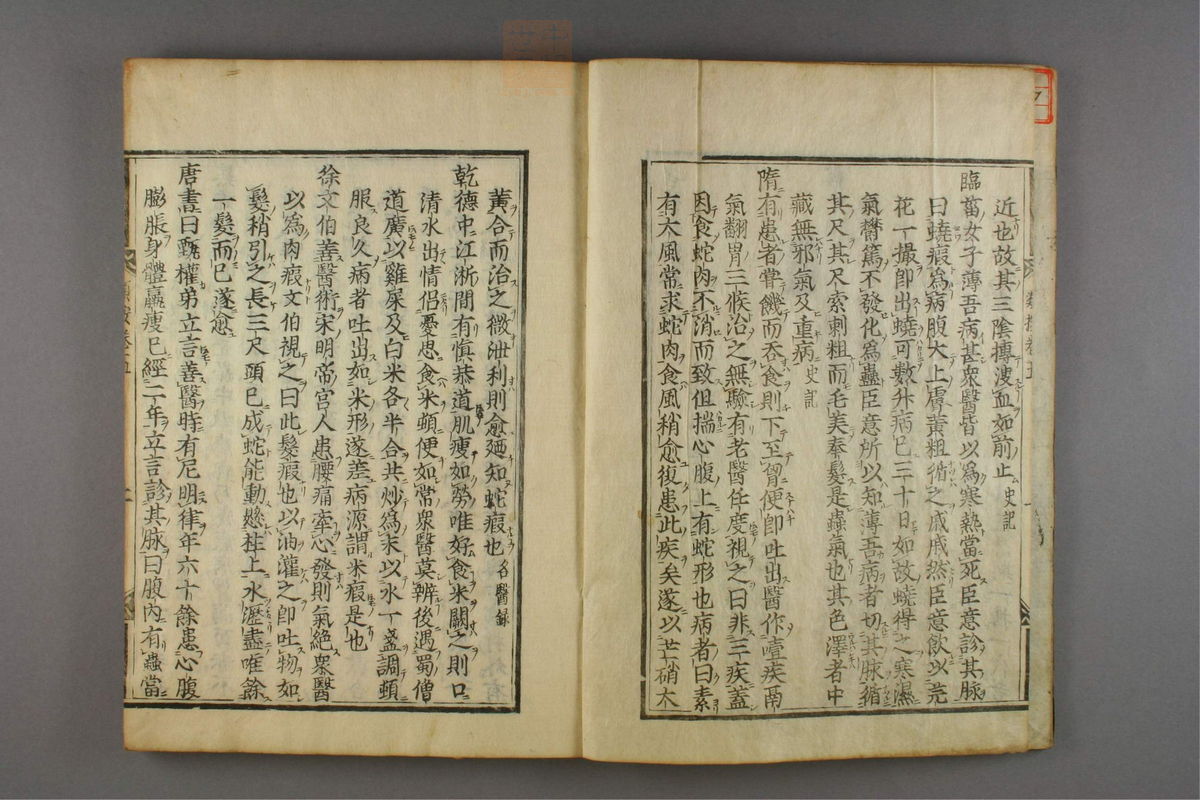 近也故其三陰搏溲血如前止史記
臨菑女子薄吾病甚衆醫皆以爲寒熱當死臣意診其脉
曰蟯瘕爲病腹大上膚黃粗循之戚戚然臣意飲以芫
花一撮卽出蟯可數升病已三十日如故蟯得之寒濕
氣鬱篤不發化爲蟲臣意所以知薄吾病者切其脉循
其尺其尺索刺粗而毛美奉髮是蟲氣也其色澤者中
藏無邪氣及重病史記
隋有患者嘗饑而吞食則下至胷便卽吐出醫作噎疾鬲
氣翻胃三候治之無驗有老醫任度視之曰非三疾蓋
因食蛇肉不消而致但揣心腹上有蛇形也病者曰素
有大風常求蛇肉食風稍愈復患此疾矣遂以芒硝大
黃合而治之微泄利則愈廼知蛇瘕也名醫録
乾德中江浙間有愼恭道肌瘦如勞唯好食米闕之則口
清水出情似憂思食米頓便如常衆醫莫辨後遇蜀僧
道廣以雞屎及白米各半合共炒爲末以水一盞調頓
服良久病者吐出如米形遂差病源謂米瘕是也
徐文伯善醫術宋明帝宮人患腰痛牽心發則氣絕衆醫
以爲肉瘕文伯視之曰此髮瘕也以油灌之卽吐物如
髮稍引之長三尺頭已成蛇能動懸柱上水瀝盡唯餘
一髮而已遂愈
唐書曰甄權弟立言善醫時有尼明律年六十餘患心腹
膨脹身體羸瘦已經二年立言診其脉曰腹內有蟲當